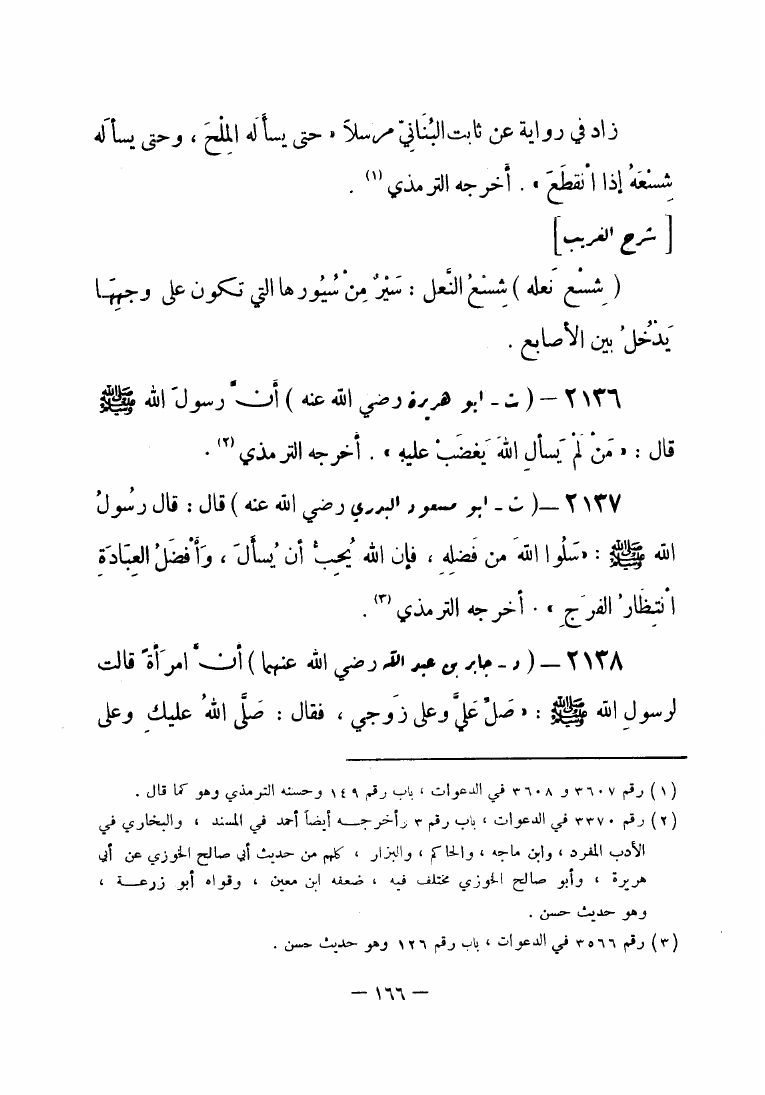 زاد في رواية عن ثابت البُنَانِيّ مرسلاً « حتى يسأَله المِلْحَ ، وحتى يسأله
شِسْعَهُ إذا انْقطَعَ » . أخرجه الترمذي (١) .
[ شرح الغريب ]
( شِسْع نَعله ) شِسْعُ النَّعل : سَيْرٌ مِنْ سُيُورها التي تكون على وجهِهَا
يَدْخُلُ بين الأصابع .
٢١٣٦ – ( ت - ابو هريرة رضي الله عنه ) أنَّ رسولَ الله ﷺ
قال : « مَنْ لَمْ يَسألِ اللهَ يَغضَبْ عليهِ » . أخرجه الترمذي (٢) .
٢١٣٧ – ( ت - ابو مسعود البدري رضي الله عنه ) قال : قال رسُولُ
الله ﷺ : « سَلُوا اللهَ من فَضلِهِ ، فإن الله يُحِبُّ أن يُسأَلَ ، وَأَفْضَلُ العِبَادَةِ
انْتِظَارُ الفرَجِ » . أخرجه الترمذي (٣) .
٢١٣٨ – ( د - جابر بن عبد الله رضي الله عنهما ) أنَّ امرَأةً قالت
لرسولِ الله ﷺ : « صَلِّ عَلَيَّ وعلى زَوجي ، فقال : صَلَّى اللهُ عليكِ وعلى
(١) رقم ٣٦٠٧ و ٣٦٠٨ في الدعوات ، باب رقم ١٤٩ وحسنه الترمذي وهو كما قال .
(٢) رقم ٣٣٧٠ في الدعوات ، باب رقم ٣ وأخرجه أيضاً أحمد في المسند ، والبخاري في
الأدب المفرد ، وابن ماجه ، والحاكم ، والبزار ، كلهم من حديث أبي صالح الخوزي عن أبي
هريرة ، وأبو صالح الخوزي مختلف فيه ، ضعفه ابن معين ، وقواه أبو زرعة ،
وهو حديث حسن .
(٣) رقم ٣٥٦٦ في الدعوات ، باب رقم ١٢٦ وهو حديث حسن .
– ١٦٦ –